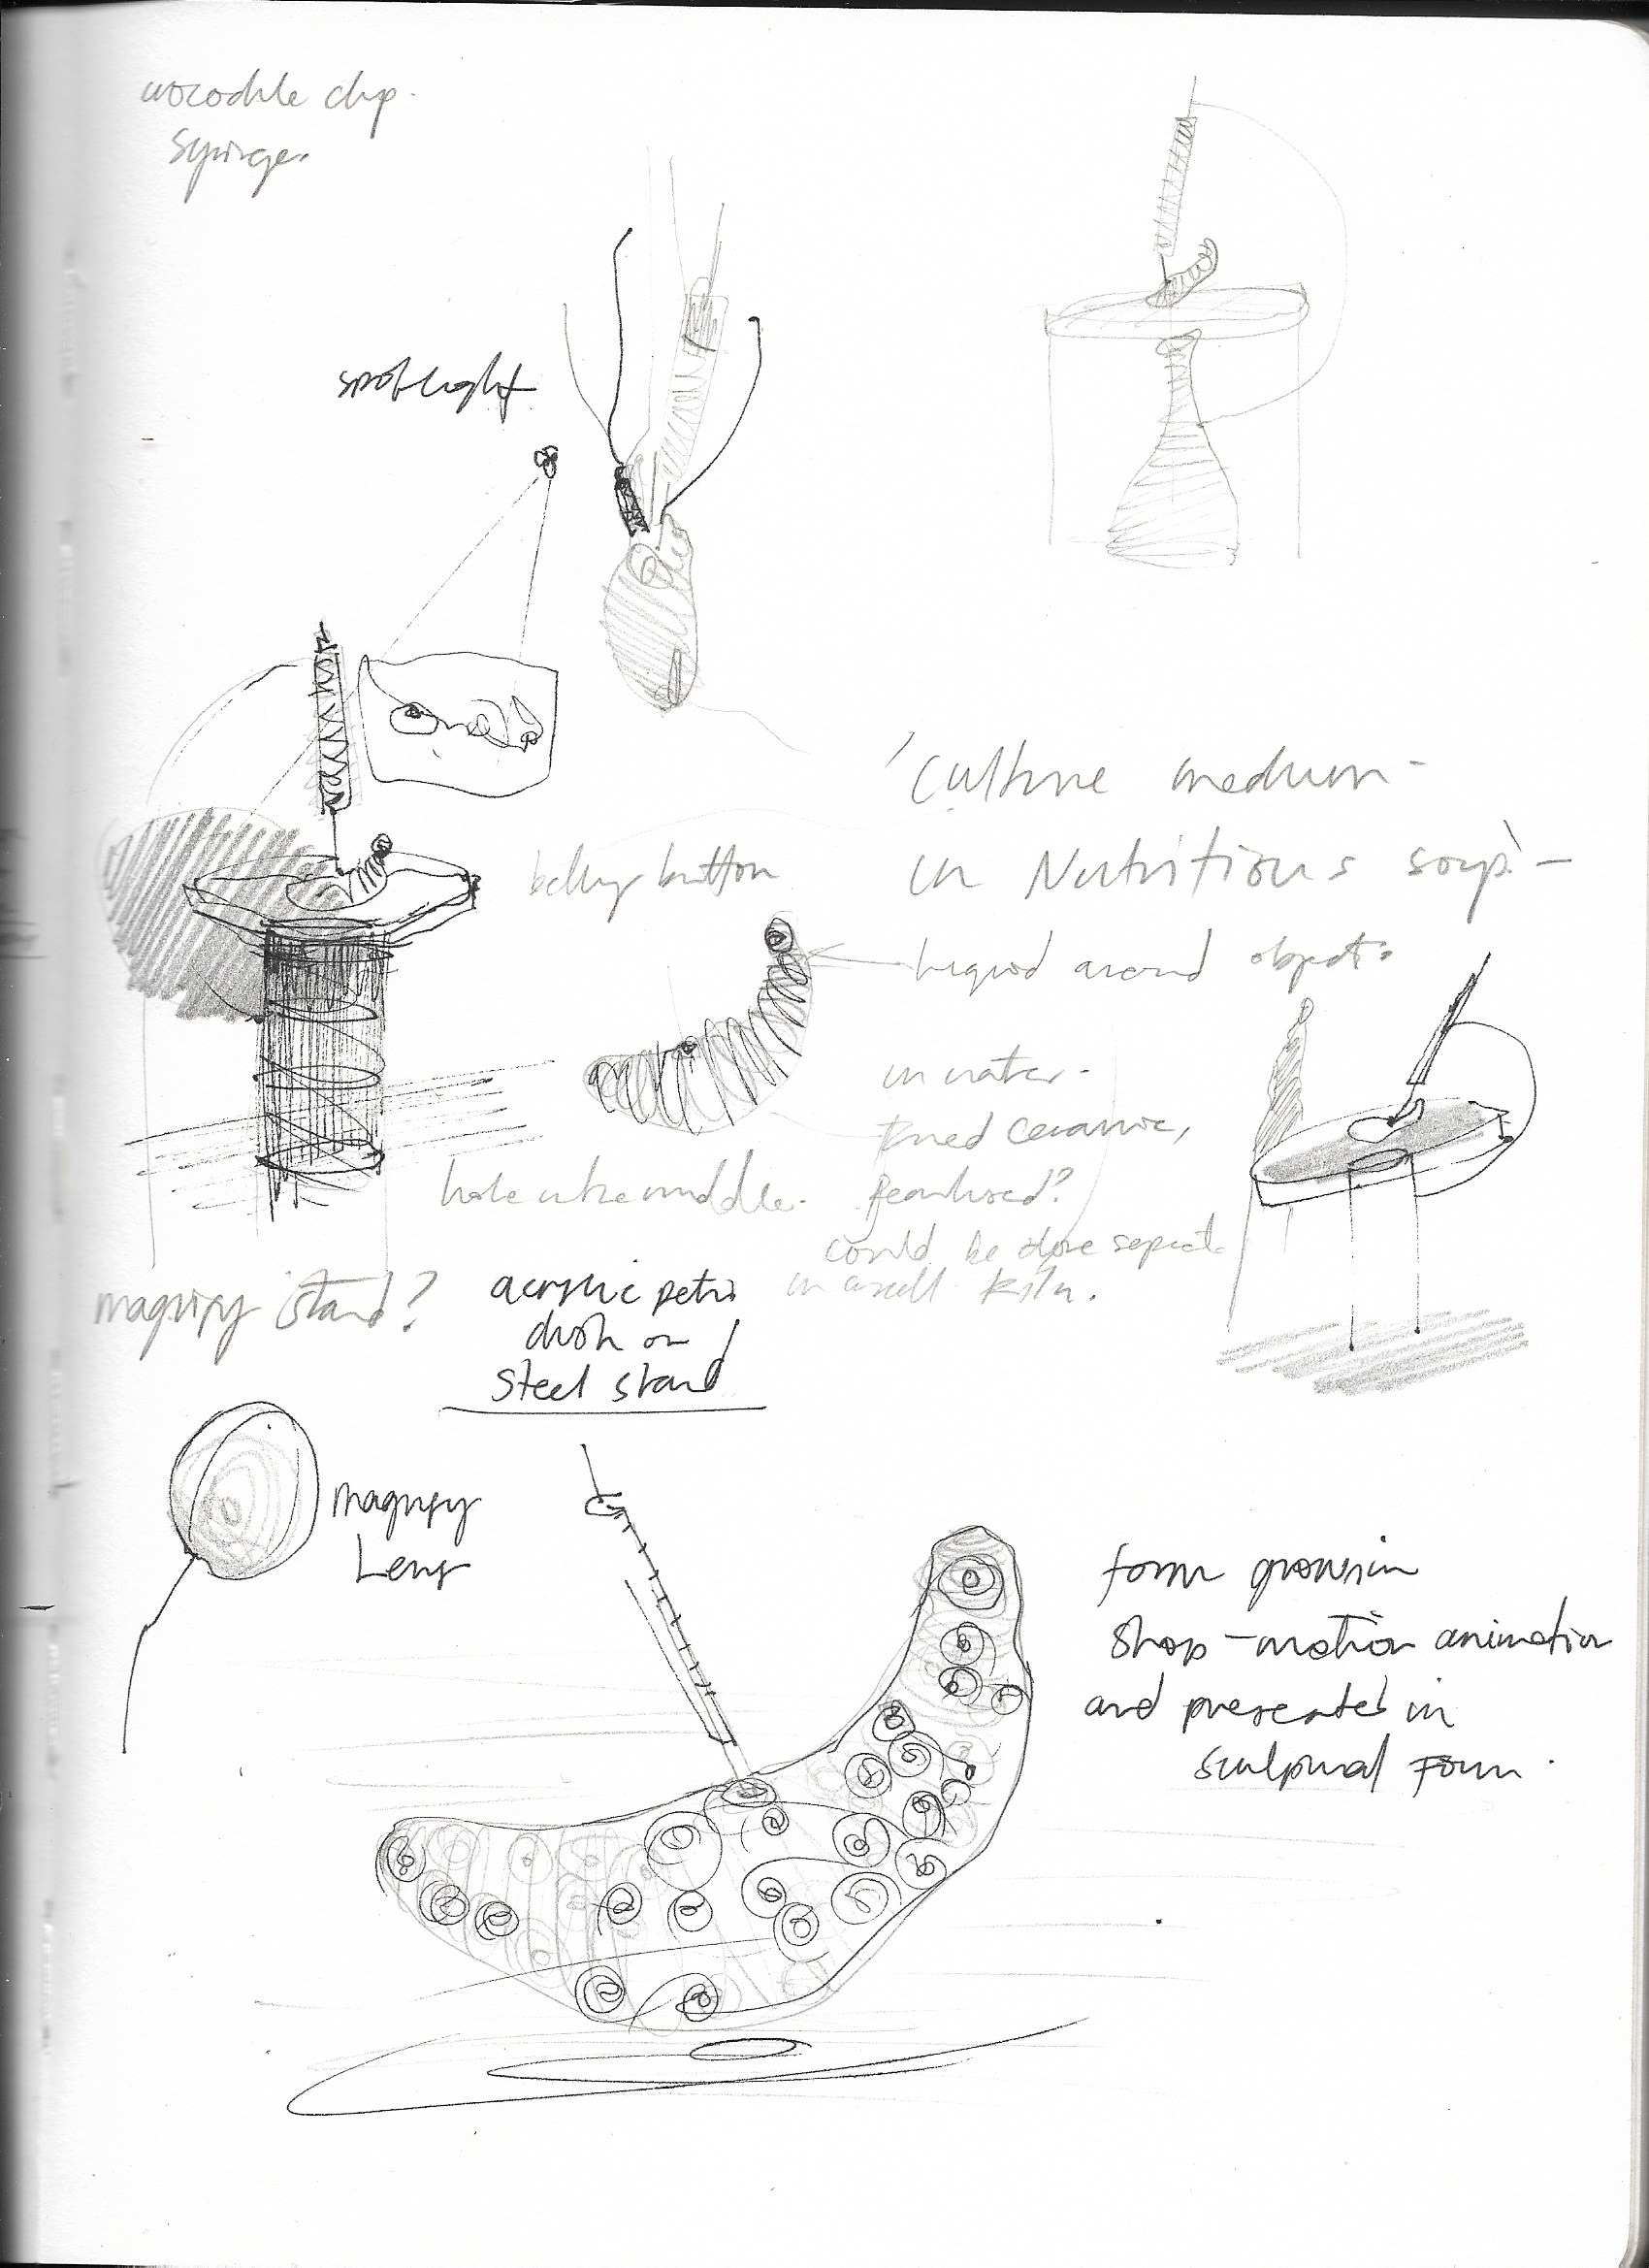 crocodile clip.
syringe.
spotlight
'Culture medium -
in Nutritious soup' -
belly button
liquid around object.
in water.
fired ceramic,
hole in the middle.
could be done separate
in small kiln.
magnify stand?
acrylic petri
dish on
steel stand
magnify
Lens
form grows in
stop-motion animation
and presented in
sculptural form.